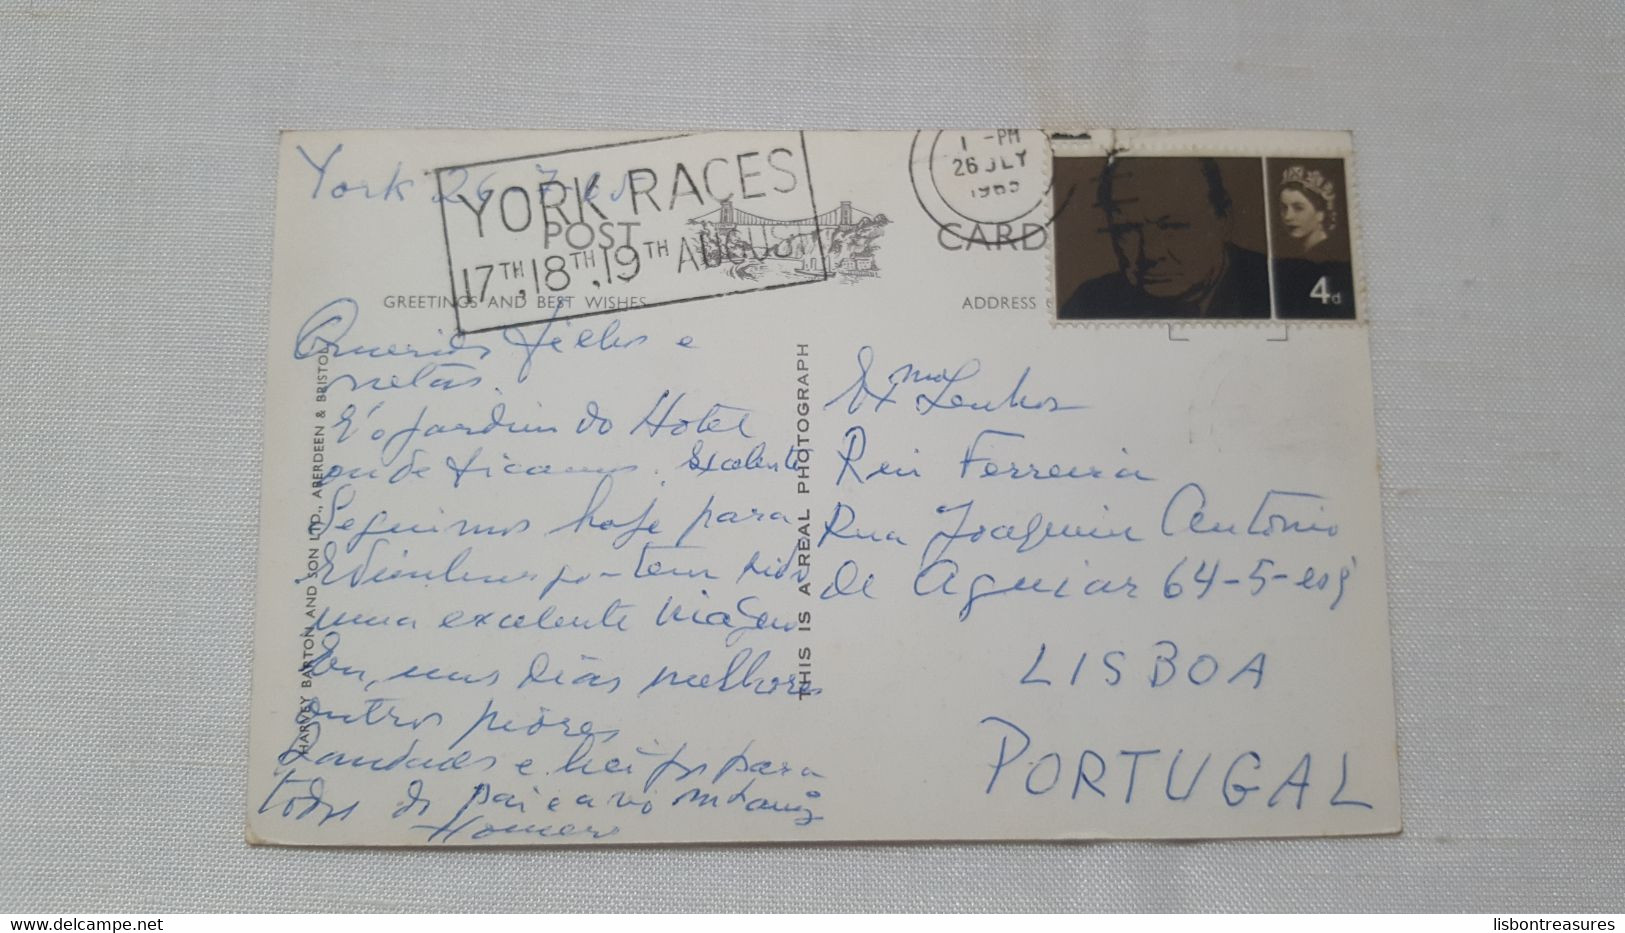 York 26-7-65
YORK RACES
17TH, 18TH, 19TH AUGUST
1 -PM
26 JLY
1965
POST CARD
4d
GREETINGS AND BEST WISHES
ADDRESS
Queridos filhos e
netas.
É o jardim do Hotel
onde ficamos. Excelente
Seguimos hoje para
uma excelente viagem
uns dias melhores
outros piores
Saudades e beijos para
todos do pai e avô
Homero
HARVEY BARTON AND SON LTD., ABERDEEN & BRISTOL
THIS IS A REAL PHOTOGRAPH
Exmo Senhor
Rui Ferreira
Rua Joaquim António
de Aguiar 64-5-esq
LISBOA
PORTUGAL
www.delcampe.net
lisbontreasures